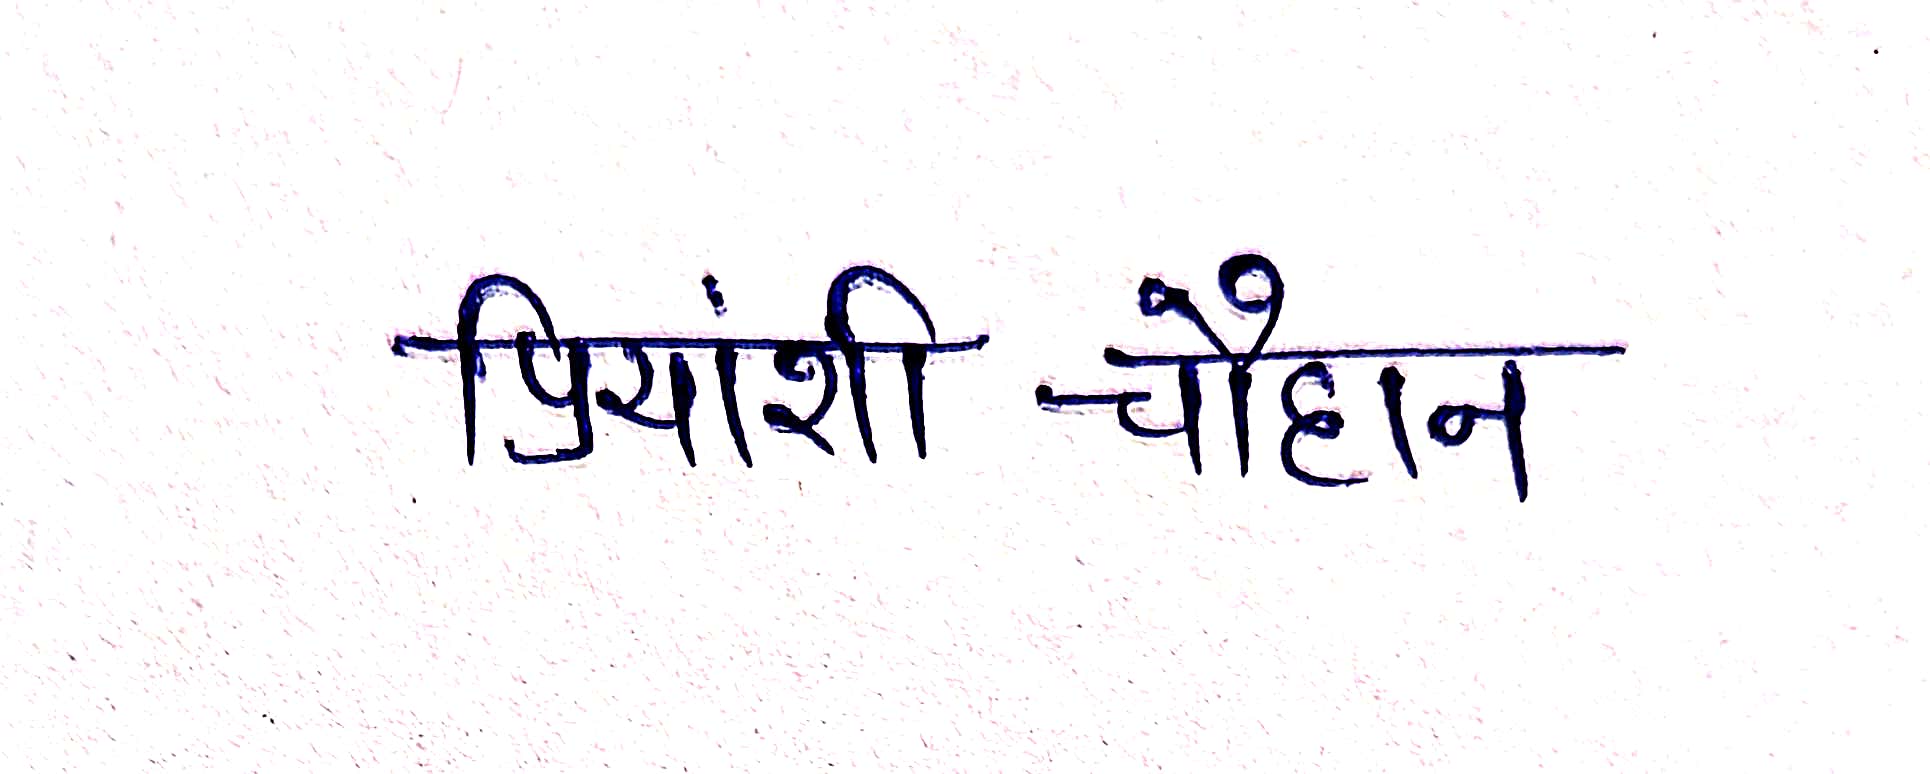 प्रियांशी चौहान